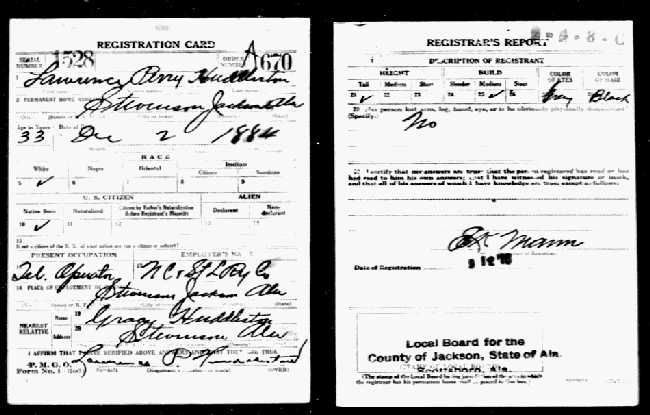 REGISTRATION CARD
SERIAL NUMBER 1528
ORDER NUMBER A 670
1 Lawrence Perry Huddleston
2 PERMANENT HOME ADDRESS
Stevenson Jackson Ala
Age in Years Date of Birth
33 Dec 2 1884
RACE
White Negro Oriental Indian
Citizen Noncitizen
5 ✓ 6 7 8 9
U. S. CITIZEN ALIEN
Native Born Naturalized Citizen by Father's Naturalization Before Registrant's Majority Declarant Non-declarant
10 ✓ 11 12 13 14
15
If not a citizen of the U. S., of what nation are you a citizen or subject?
PRESENT OCCUPATION EMPLOYER'S NAME
Tel. Operator N C & St L Ry Co
18 PLACE OF EMPLOYMENT
Stevenson Jackson Ala
NEAREST RELATIVE
Name 19 Gracy Huddleston
Address 20 Stevenson Ala
I AFFIRM THAT I HAVE VERIFIED ABOVE ANSWERS AND THAT THEY ARE TRUE
P. M. G. O.
Form No. 1 (Red)
(OVER)
REGISTRAR'S REPORT
DESCRIPTION OF REGISTRANT
HEIGHT BUILD COLOR OF EYES COLOR OF HAIR
Tall Medium Short Slender Medium Stout
21 ✓ 22 23 24 25 ✓ 26 27 Gray 28 Black
29 Has person lost arm, leg, hand, eye, or is he obviously physically disqualified?
(Specify.) No
30 I certify that my answers are true; that the person registered has read or has had read to him his own answers; that I have witnessed his signature or mark, and that all of his answers of which I have knowledge are true, except as follows:
Mann
Date of Registration
Local Board for the
County of Jackson, State of Ala.
Scottsboro, Ala.
(The stamp of the Local Board having jurisdiction of the area in which
the registrant has his permanent home shall be placed in this box.)